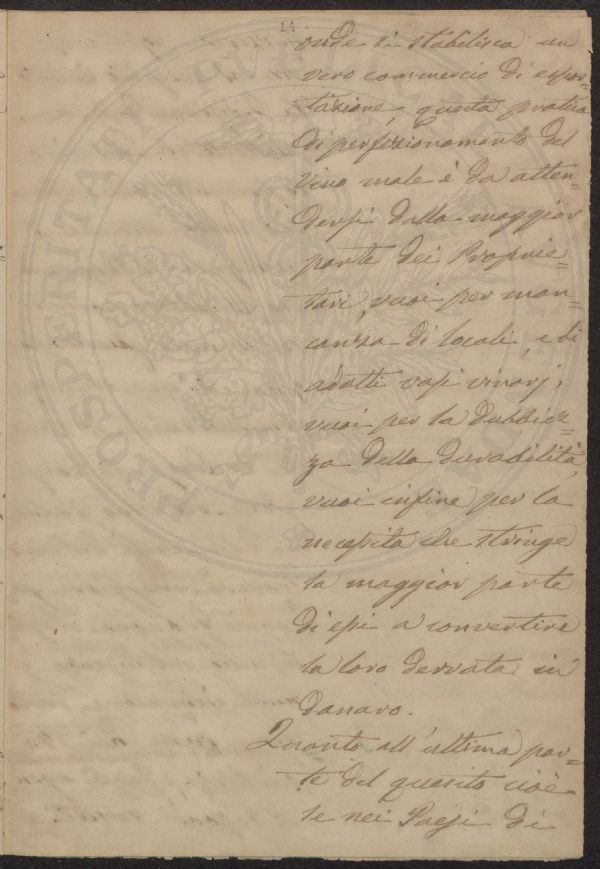 14
onde si stabilisca un
vero commercio di espor=
tazione, questa pratica
di perfezionamento del
Vino male è da atten=
dersi dalla maggior
parte dei Proprie=
tari, vuoi per man=
canza di locali, e di
adatti vasi vinarj,
vuoi per la dubbiez=
za della durabilità,
vuoi infine per la
necessità che stringe
la maggior parte
di essi a convertire
la loro derrata in
danaro.
Quanto all'ultima par=
te del quesito cioè
se nei Paesi di
PROSPERITATI PUBLICAE